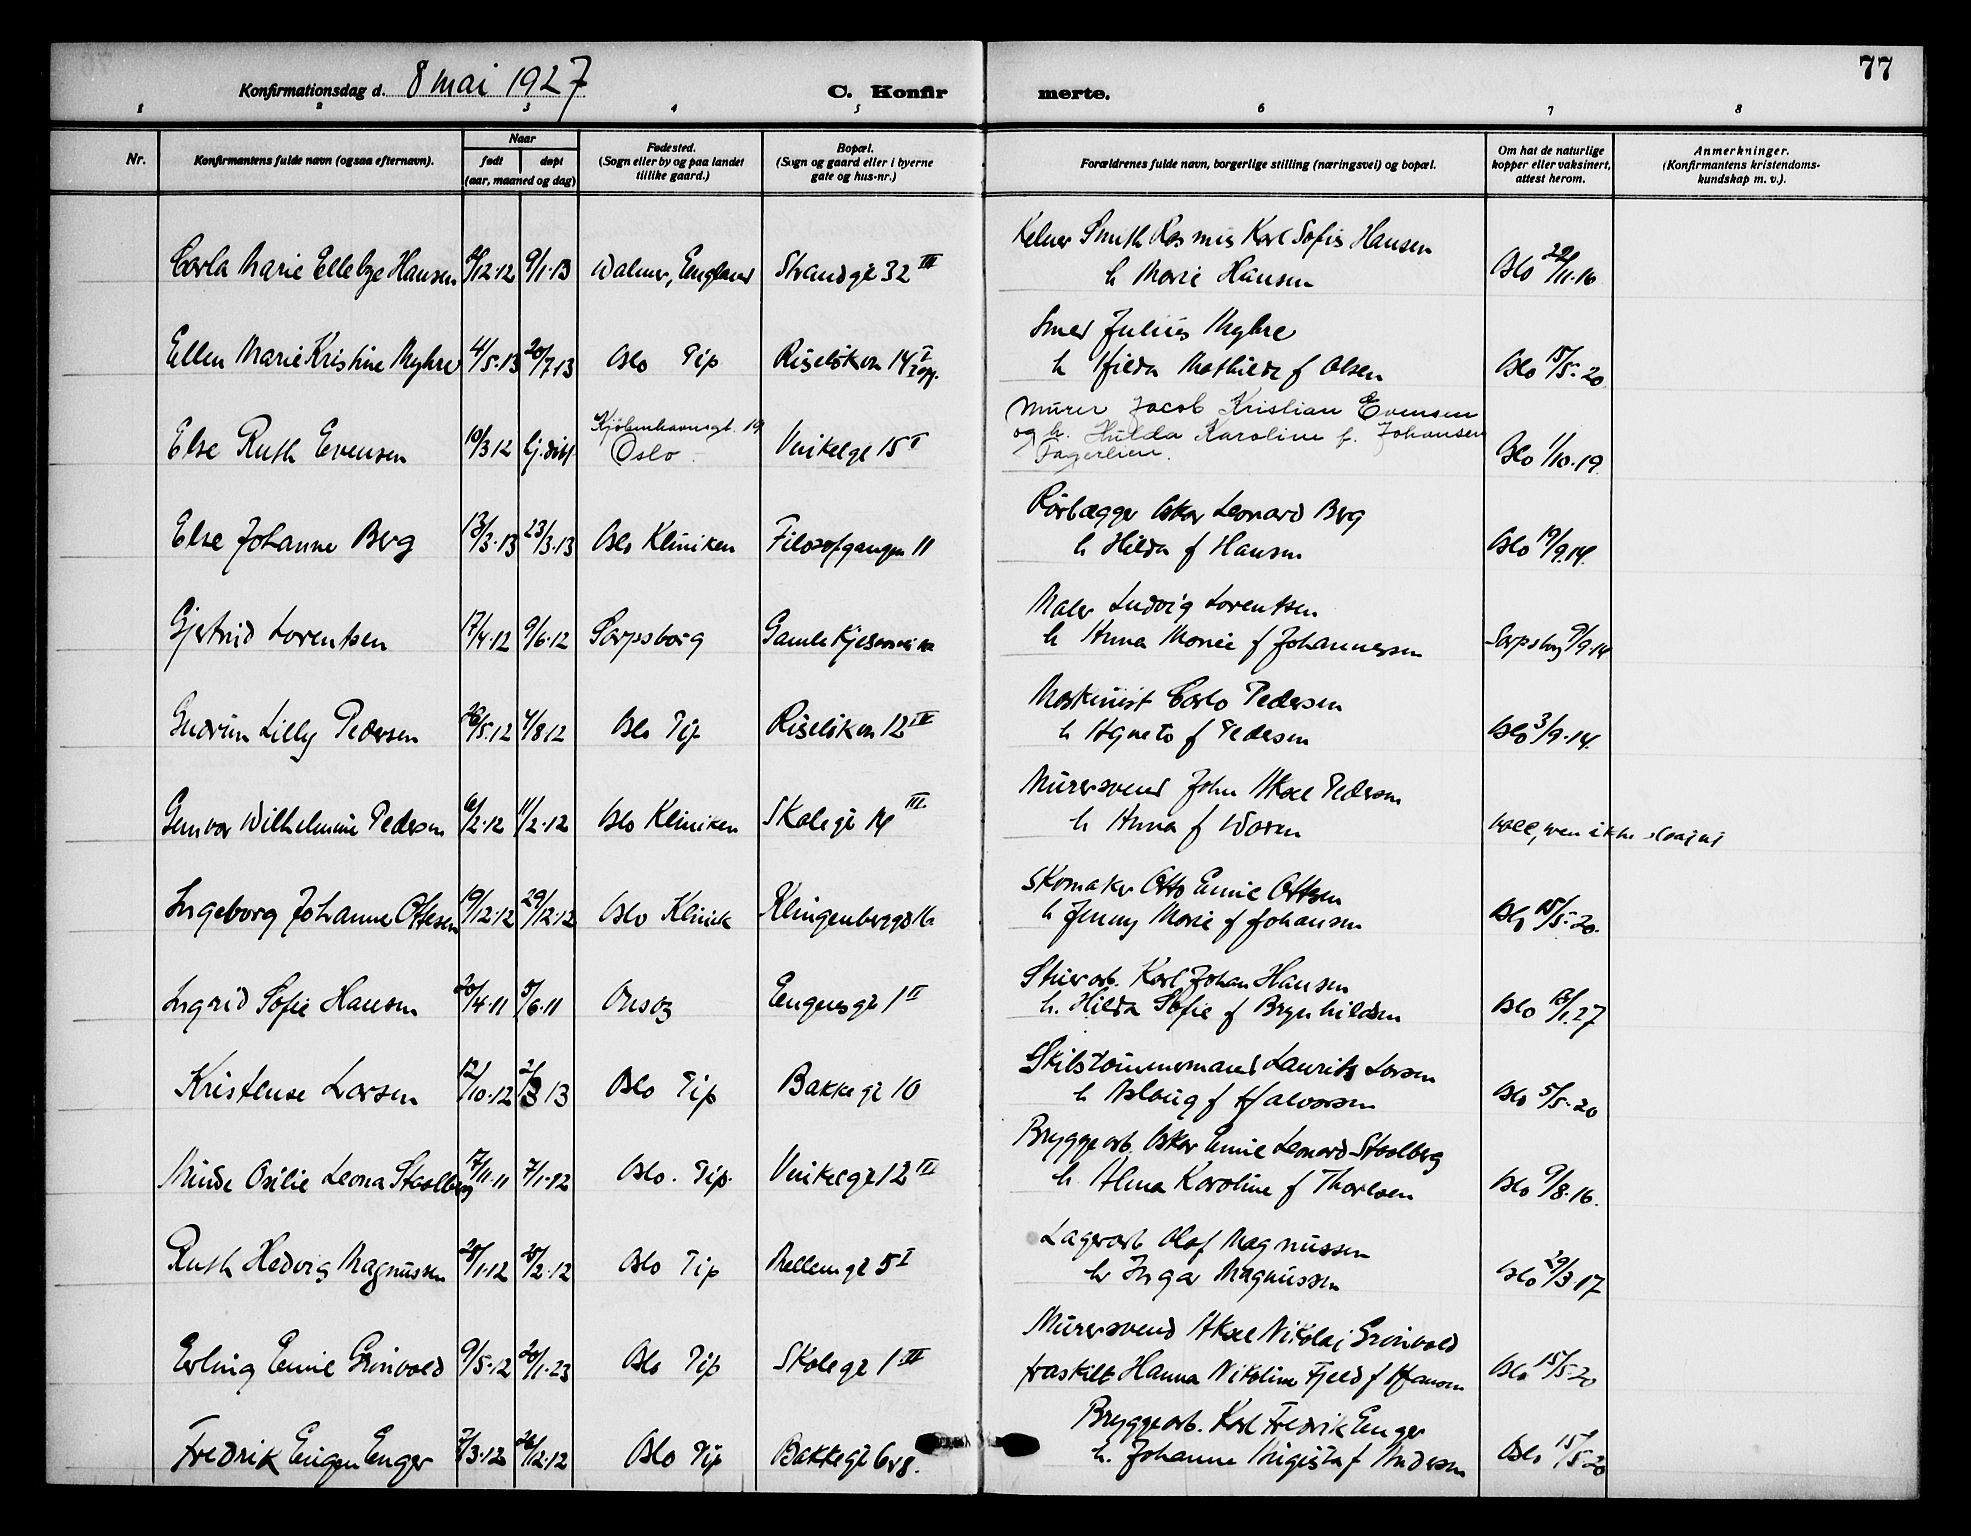 77
Konfirmationsdag d. 8 mai 1927
C. Konfir merte.
1 2 3 4 5 6 7 8
Nr.
Konfirmantens fulde navn (ogsaa efternavn).
Naar
født døpt
(aar, maaned og dag)
Fødested.
(Sogn eller by og paa landet
tillike gaard.)
Bopæl.
(Sogn og gaard eller i byerne
gate og hus-nr.)
Forældrenes fulde navn, borgerlige stilling (næringsvei) og bopæl.
Om hat de naturlige
kopper eller vaksinert,
attest herom.
Anmerkninger.
(Konfirmantens kristendoms-
kundskap m. v.).
Kelner Smith Rasmus Karl Sofus Hansen
Carla Marie Ellebye Hansen /12·12 9/1·13 Walmer, England Strandgt 32 III h Marie Hansen Oslo 22/11·16
Smed Julius Myhre
Ellen Marie Kristine Myhre 4/5·13 20/7·13 Oslo Tip Ruseløkvn 14 I h Hilda Mathilde f Olsen Oslo 15/5·20
Murer Jacob Kristian Evensen
Kjøbenhavnsgt. 19 og h. Hulda Karoline f. Johansen
Else Ruth Evensen 10/3 12 Oslo Vinkelgt 15 I Fagerlien. Oslo 1/10·19
Rørlægger Oskar Leonard Berg
Else Johanne Berg 13/3·13 23/3·13 Oslo Kliniken Filosofgangen 11 h Hilda f Hansen Oslo 19/9·14
Maler Ludvig Lorentsen
Gjertrud Lorentsen 17/4·12 9/6·12 Sarpsborg Gamle h Anna Marie f Johannessen Sarpsborg 9/9·14
Maskinist Carlo Pedersen
Gudrun Lilly Pedersen 26/5·12 4/8·12 Oslo Tip Ruseløkvn 12 IV h Agneta f Pedersen Oslo 3/9·14
Murersvend John Aksel Pedersen
Gunvor Wilhelmine Pedersen 6/2·12 11/2·12 Oslo Kliniken Skolegt 14 III h Anna f Woren vacc, men ikke
Skomaker Otto Emil Ottesen
Ingeborg Johanne Ottesen 19/12·12 29/12·12 Oslo Klinick Klingenberggt h Jenny Marie f Johansen Oslo 15/5·20
Karl Johan Hansen
Ingrid Sofie Hansen 20/4·11 5/6·11 Onsøy Engens gt 1 II h. Hilda Sofie f Brynhildsen Oslo 13/1·27
Skibstømmermand Laurits Larsen
Kristense Larsen 12/10·12 2/3 13 Oslo Tip Bakkegt 10 h Aslaug f Halvorsen Oslo 5/5·20
Bryggearb. Oskar Emil Leonard Staalberg
Minde Otilie Leona Staalberg 17/11·11 7/1·12 Oslo. Tip. Vinkelgt 12 III h. Alma Karoline f Thorlsen Oslo 9/8·16.
Lagerarb Olaf Magnussen
Ruth Hedvig Magnussen 28/1·12 28/2·12 Oslo Tip Mellemgt 5 I h Inga Magnussen Oslo 29/3·17
Murersvend Aksel Nikolai Grønvold
Erling Emil Grønvold 9/5·12 20/1·23 Oslo Tip Skolegt 1 III fraskilt Hanna Nikoline Fjeld f Hansen Oslo 15/5·20
Bryggearb. Karl Fredrik Enger
Fredrik Eugen Enger 7/3·12 26/12·12 Oslo Tip Bakkegt 6 h. Johanne Augusta f Andersen Oslo 15/5·20